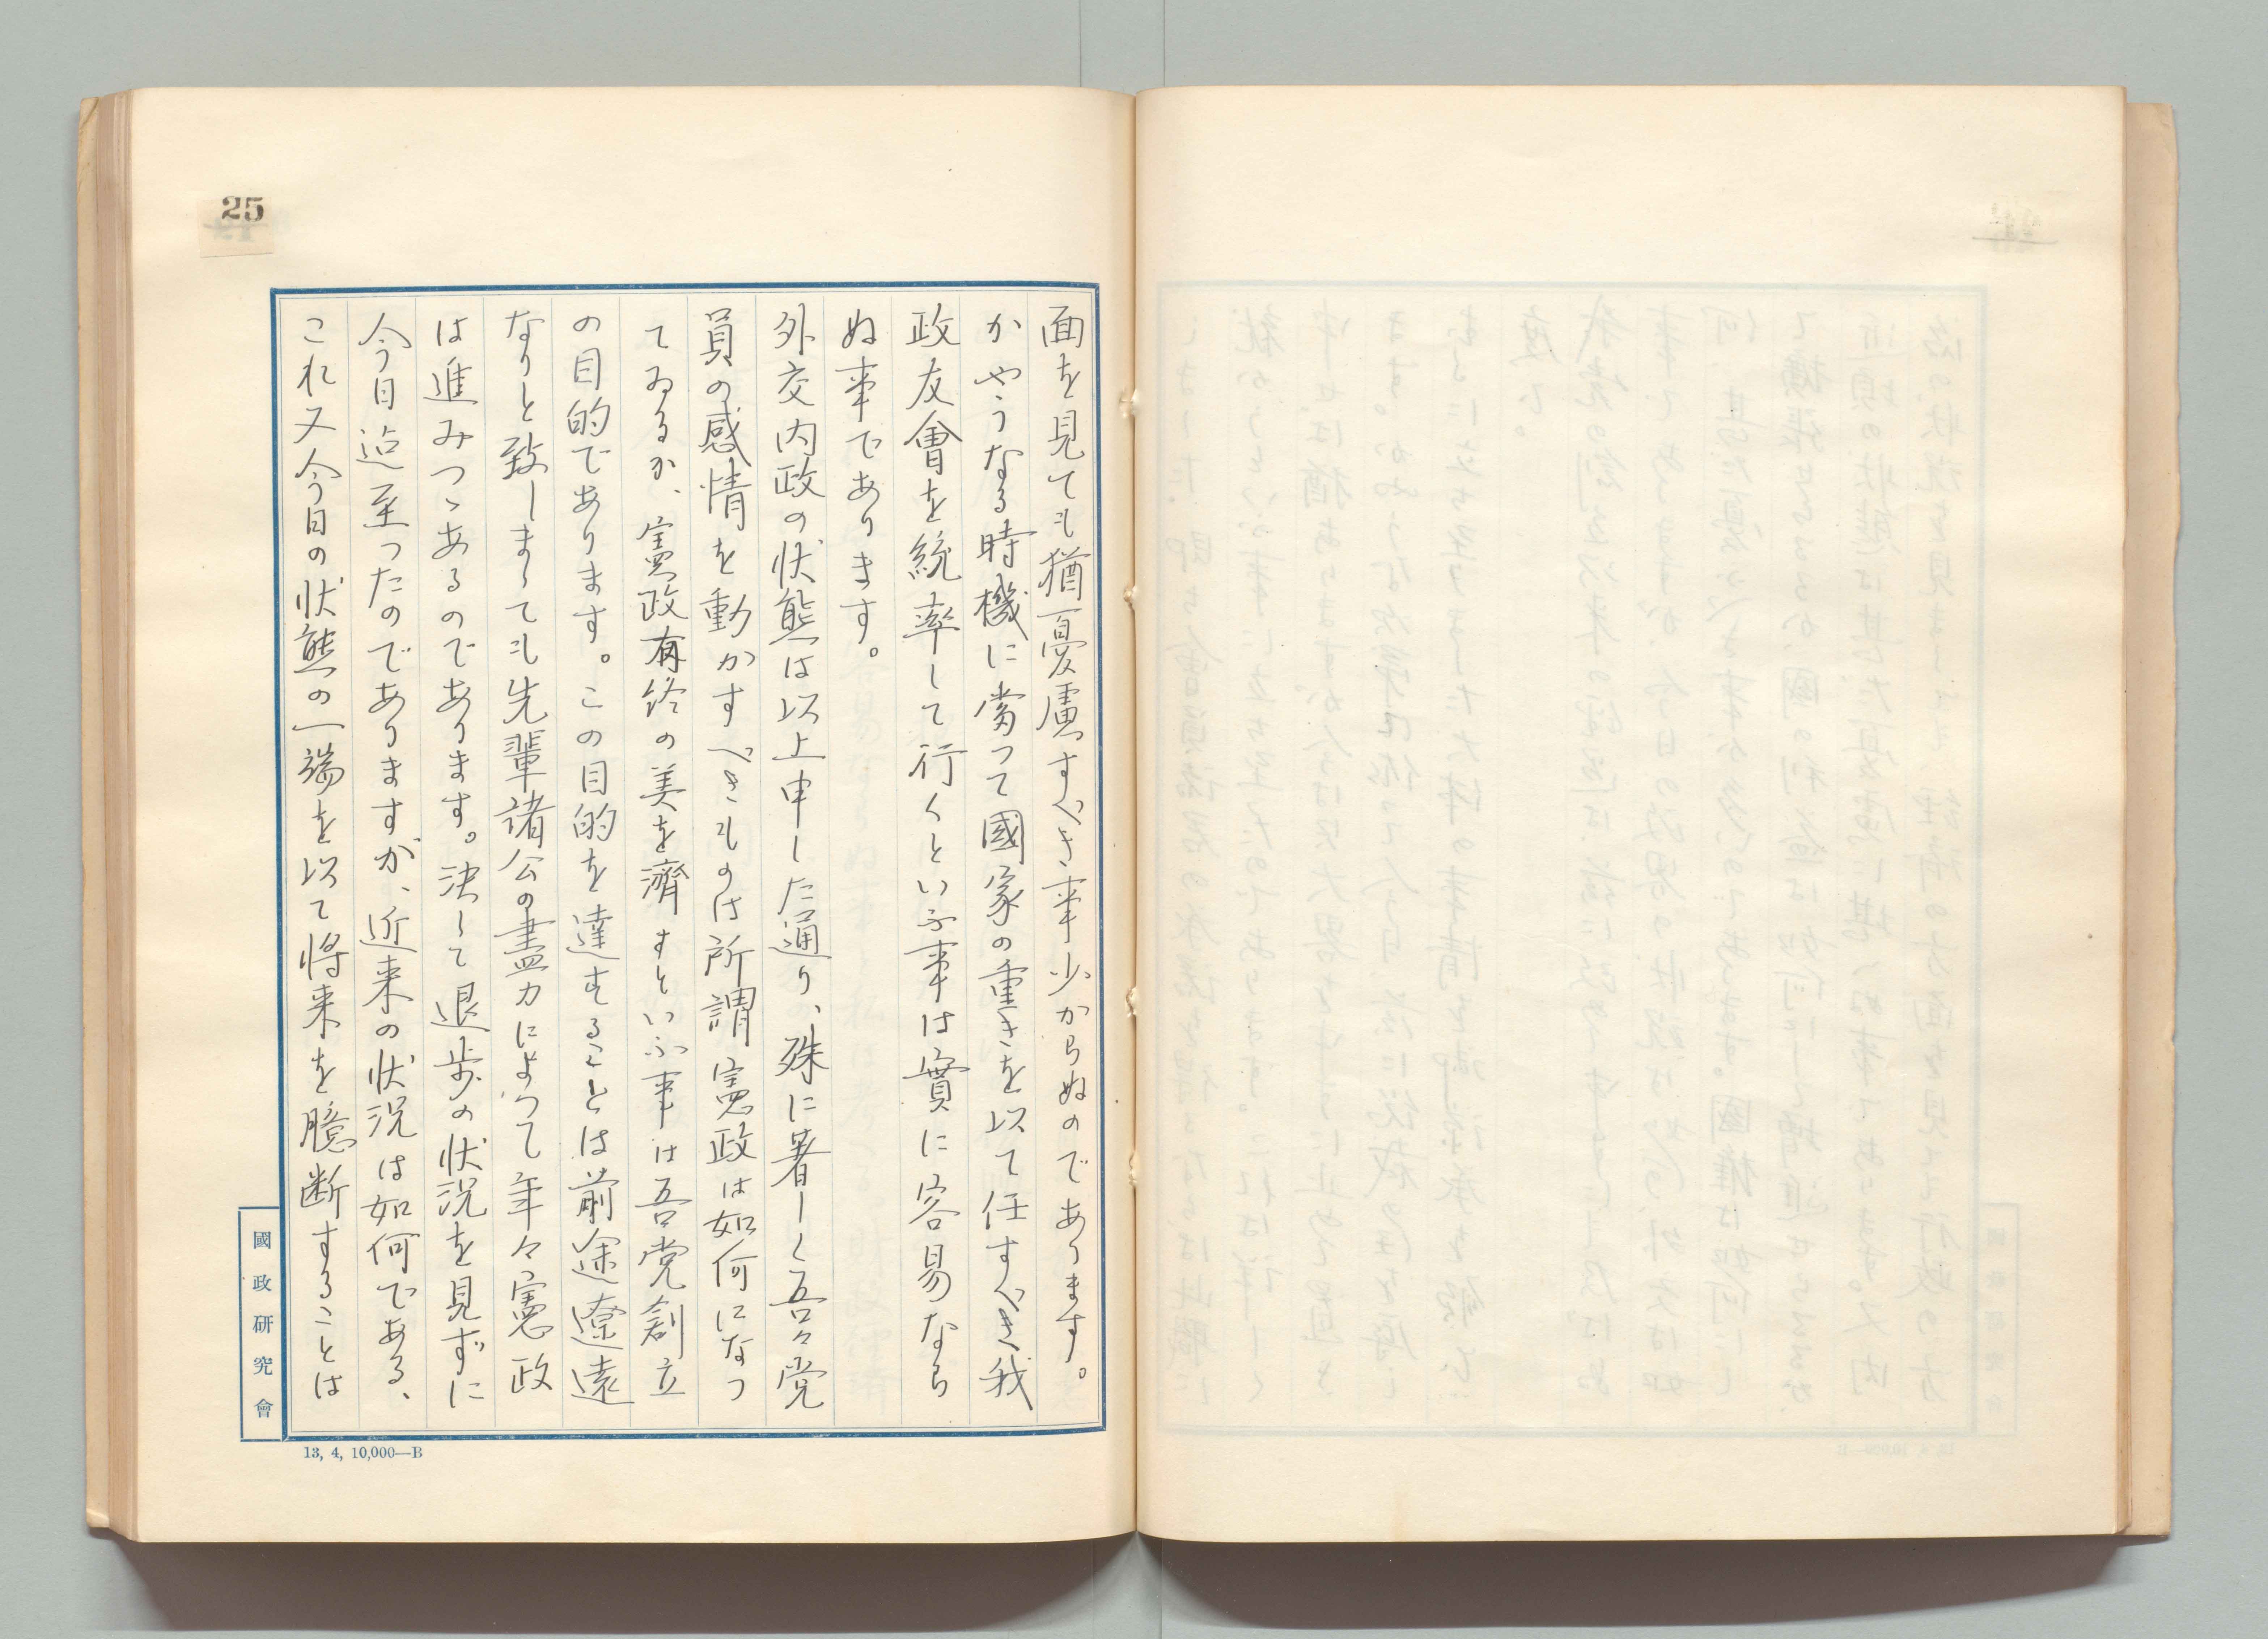 25
面を見ても猶憂慮すべき事少からぬのであります。
かやうなる時機に当つて國家の重きを以て任すべき我
政友會を統率して行くといふ事は實に容易なら
ぬ事であります。
外交内政の状態は以上申した通り、殊に著しく吾々党
員の感情を動かすべきものは所謂憲政は如何になつ
てゐるか、憲政有終の美を濟すといふ事は吾党創立
の目的であります。この目的を達することは前途遼遠
なりと致しましても先輩諸公の盡力によつて年々憲政
は進みつゝあるのであります。決して退歩の状況を見ずに
今日迠至つたのでありますが、近来の状況は如何である、
これ又今日の状態の一端を以て将来を臆断することは
國政研究會
13, 4, 10,000—B